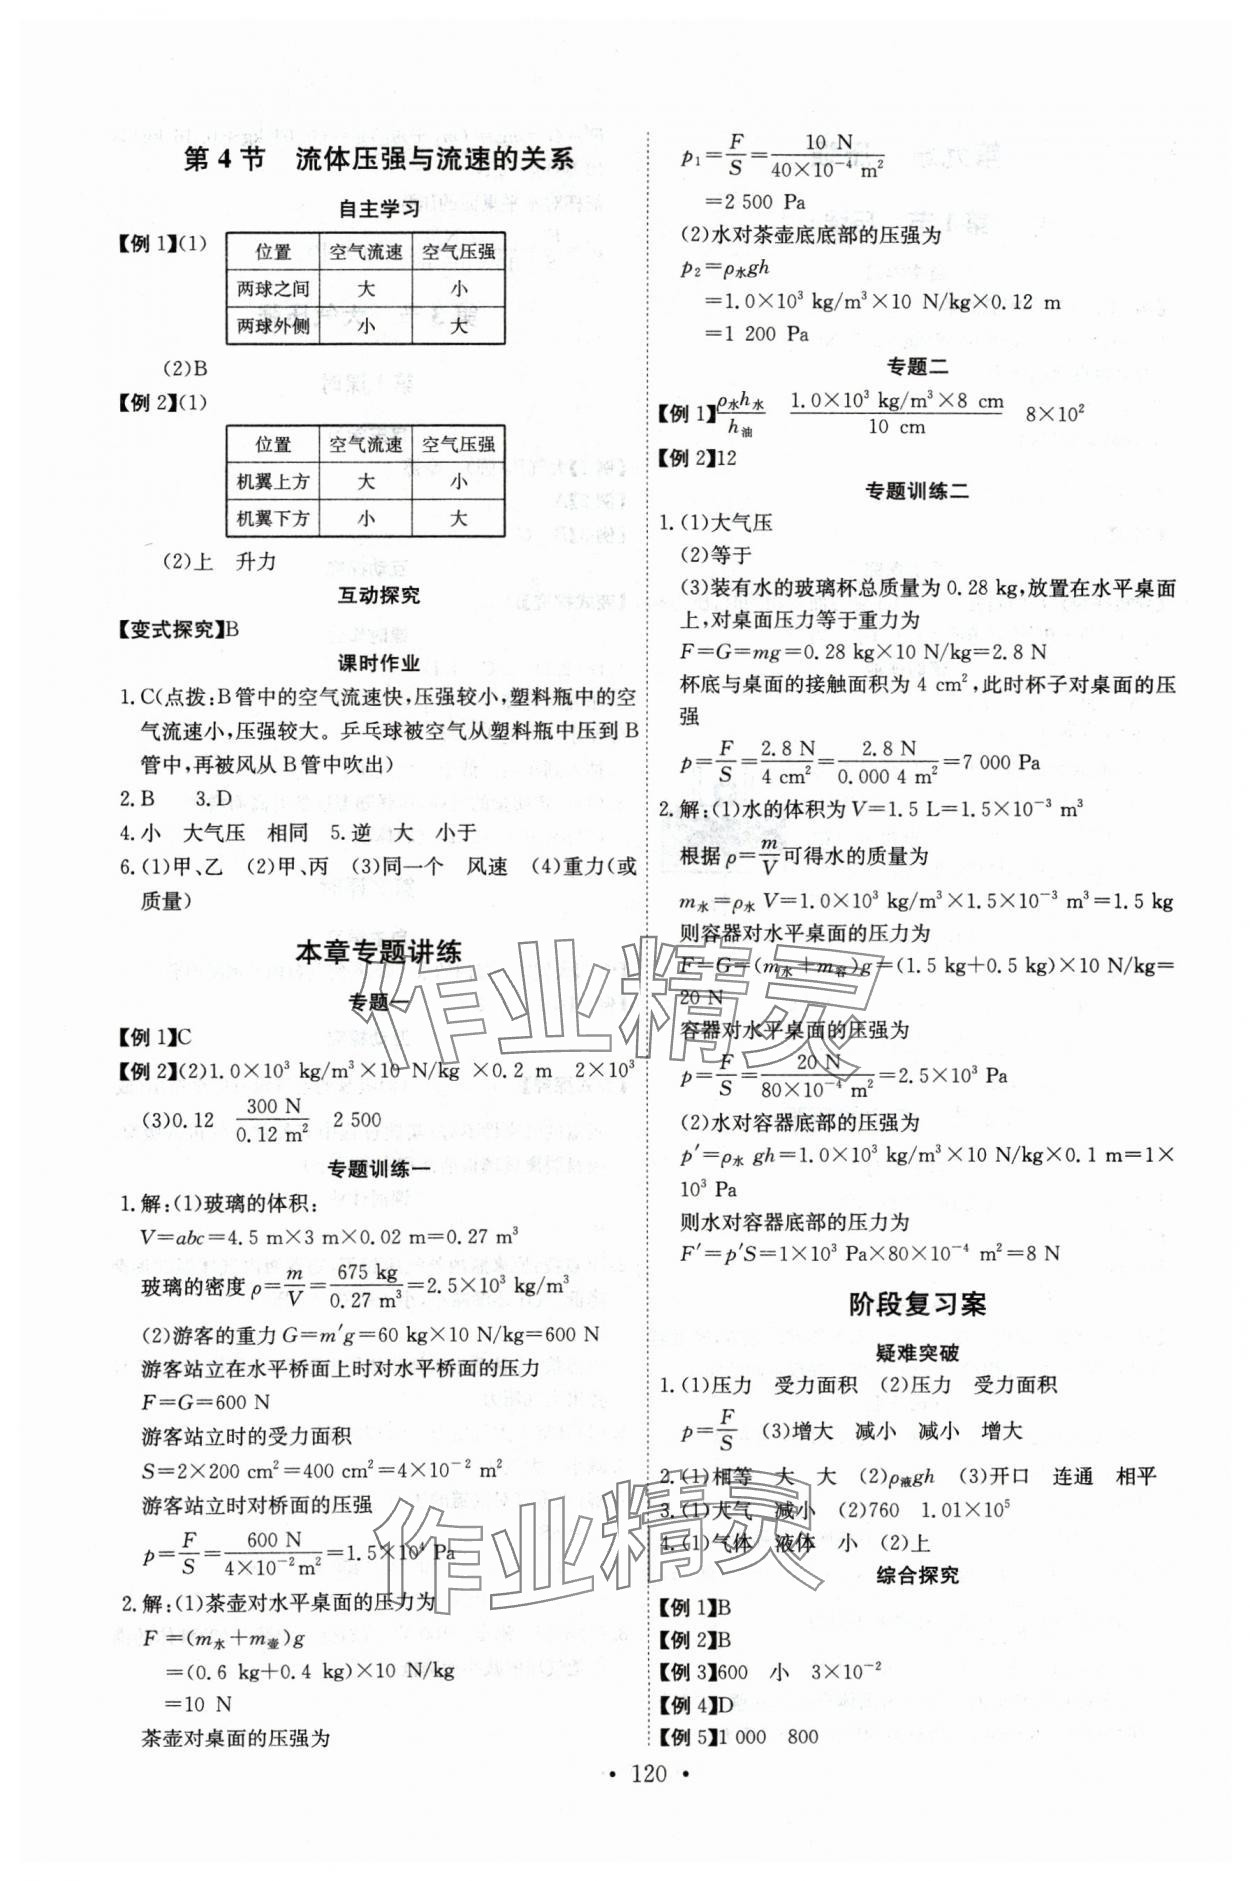 第 4 节　流体压强与流速的关系
自主学习
【例 1】(1)
位置　空气流速　空气压强
两球之间　大　小
两球外侧　小　大
(2)B
【例 2】(1)
位置　空气流速　空气压强
机翼上方　大　小
机翼下方　小　大
(2)上　升力
互动探究
【变式探究】B
课时作业
1. C(点拨:B 管中的空气流速快,压强较小,塑料瓶中的空
气流速小,压强较大。乒乓球被空气从塑料瓶中压到 B
管中,再被风从 B 管中吹出)
2. B　3. D
4. 小　大气压　相同　5. 逆　大　小于
6. (1)甲、乙　(2)甲、丙　(3)同一个　风速　(4)重力(或
质量)
本章专题讲练
专题一
【例 1】C
【例 2】(2)1.0×10³ kg/m³×10 N/kg ×0.2 m　2×10³
(3)0.12　300 N/0.12 m²　2 500
专题训练一
1. 解:(1)玻璃的体积:
V=abc=4.5 m×3 m×0.02 m=0.27 m³
玻璃的密度 ρ=m/V=675 kg/0.27 m³=2.5×10³ kg/m³
(2)游客的重力 G=m′g=60 kg×10 N/kg=600 N
游客站立在水平桥面上时对水平桥面的压力
F=G=600 N
游客站立时的受力面积
S=2×200 cm²=400 cm²=4×10⁻² m²
游客站立时对桥面的压强
p=F/S=600 N/4×10⁻² m²=1.5×10⁴ Pa
2. 解:(1)茶壶对水平桌面的压力为
F=(m水+m壶)g
=(0.6 kg+0.4 kg)×10 N/kg
=10 N
茶壶对桌面的压强为
p₁=F/S=10 N/40×10⁻⁴ m²
=2 500 Pa
(2)水对茶壶底底部的压强为
p₂=ρ水gh
=1.0×10³ kg/m³×10 N/kg×0.12 m
=1 200 Pa
专题二
【例 1】ρ水h水/h油　1.0×10³ kg/m³×8 cm/10 cm　8×10²
【例 2】12
专题训练二
1. (1)大气压
(2)等于
(3)装有水的玻璃杯总质量为 0.28 kg,放置在水平桌面
上,对桌面压力等于重力为
F=G=mg=0.28 kg×10 N/kg=2.8 N
杯底与桌面的接触面积为 4 cm²,此时杯子对桌面的压
强
p=F/S=2.8 N/4 cm²=2.8 N/0.000 4 m²=7 000 Pa
2. 解:(1)水的体积为 V=1.5 L=1.5×10⁻³ m³
根据 ρ=m/V可得水的质量为
m水=ρ水 V=1.0×10³ kg/m³×1.5×10⁻³ m³=1.5 kg
则容器对水平桌面的压力为
F=G=(m水+m容)g=(1.5 kg+0.5 kg)×10 N/kg=
20 N
容器对水平桌面的压强为
p=F/S=20 N/80×10⁻⁴ m²=2.5×10³ Pa
(2)水对容器底部的压强为
p′=ρ水 gh=1.0×10³ kg/m³×10 N/kg×0.1 m=1×
10³ Pa
则水对容器底部的压力为
F′=p′S=1×10³ Pa×80×10⁻⁴ m²=8 N
阶段复习案
疑难突破
1. (1)压力　受力面积　(2)压力　受力面积
p=F/S　(3)增大　减小　减小　增大
2. (1)相等　大　大　(2)ρ液gh　(3)开口　连通　相平
3. (1)大气　减小　(2)760　1.01×10⁵
4. (1)气体　液体　小　(2)上
综合探究
【例 1】B
【例 2】B
【例 3】600　小　3×10⁻²
【例 4】D
【例 5】1 000　800
• 120 •
作业精灵
作业精灵